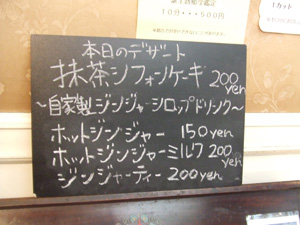 10分……500円
1カット
本日のデザート
抹茶シフォンケーキ 200yen
~自家製ジンジャーシロップドリンク~
ホットジンジャー 150yen
ホットジンジャーミルク 200yen
ジンジャーティー 200yen